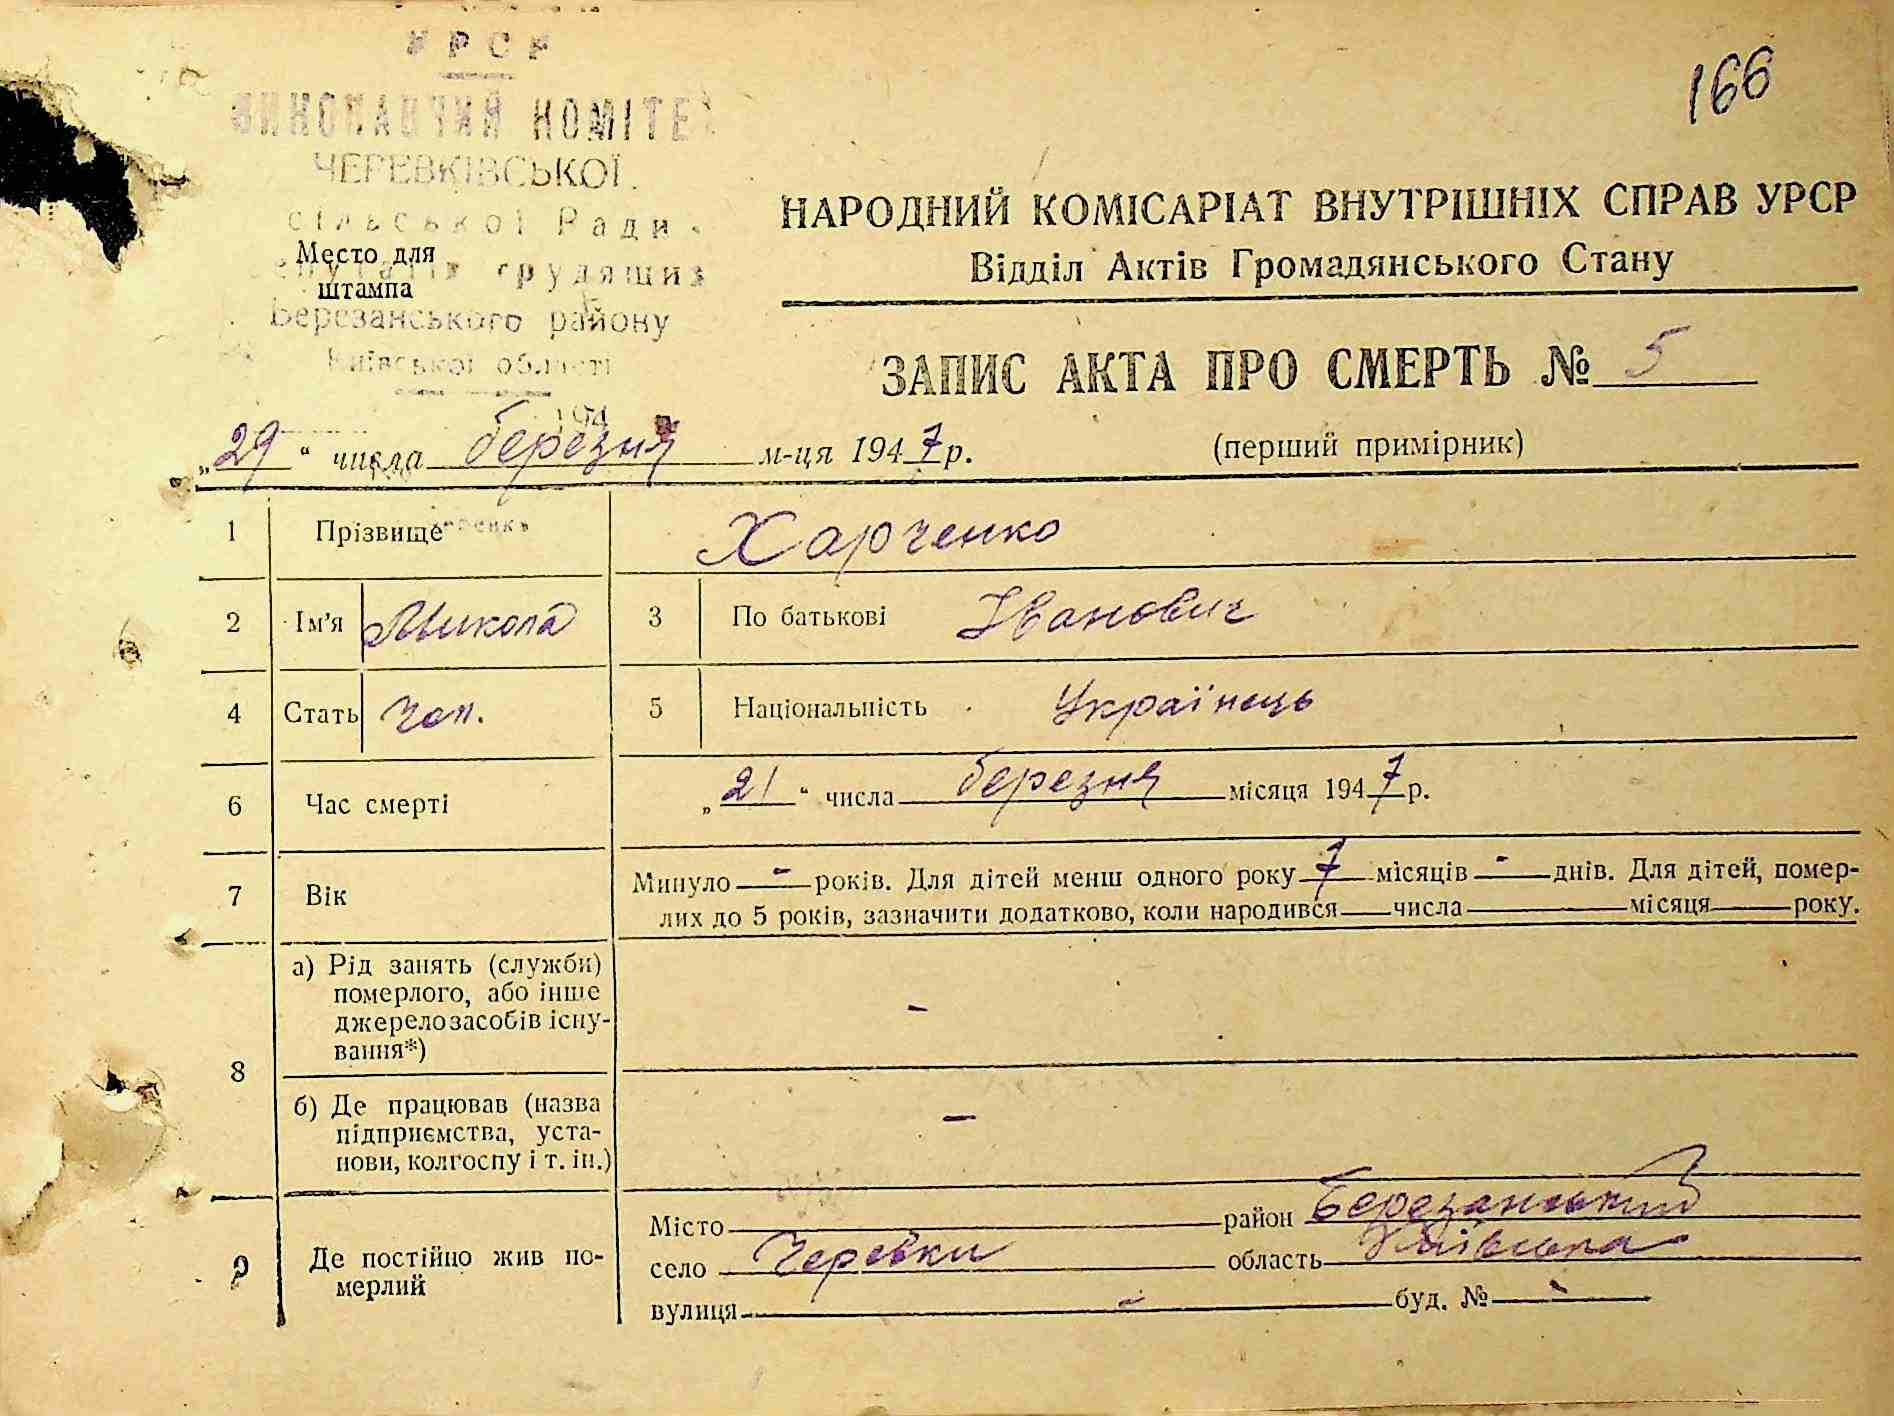 166
УРСР
ВИКОНАВЧИЙ КОМІТЕТ
ЧЕРЕВКІВСЬКОЇ
сільської Ради
депутатів трудящих
Березанського району
Київської області
194
Место для
штампа
НАРОДНИЙ КОМІСАРІАТ ВНУТРІШНІХ СПРАВ УРСР
Відділ Актів Громадянського Стану
ЗАПИС АКТА ПРО СМЕРТЬ № 5
„29“ числа березня м-ця 1947 р.
(перший примірник)
1 Прізвище Харченко
2 Ім'я Микола 3 По батькові Іванович
4 Стать Чол. 5 Національність Українець
6 Час смерті „21“ числа березня місяця 1947 р.
7 Вік Минуло - років. Для дітей менш одного року 7 місяців - днів. Для дітей, помер-
лих до 5 років, зазначити додатково, коли народився числа місяця року.
8 а) Рід занять (служби)
померлого, або інше
джерело засобів існу-
вання*) -
б) Де працював (назва
підприємства, уста-
нови, колгоспу і т. ін.) -
9 Де постійно жив по-
мерлий
Місто район Березанський
село Черевки область Київська
вулиця - буд. № -